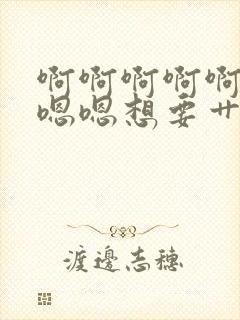 啊啊啊啊啊
嗯嗯想要艹
渡邊志穗